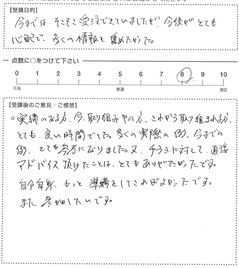 【受講目的】
今までは、そこそこ受注できていましたが、今後がとても
心配で、多くの情報を集めたかった。
点数に○をつけて下さい
0 1 2 3 4 5 6 7 8 9 10
不満 普通 満足
【受講後のご意見・ご感想】
○実績のある方、今、取り組み中の方、これから取り組まれる方、
とても、良い時間でした。多くの実際の例、今までの
例、とても参考になりました。又、チラシに対して、直接
アドバイス頂けたことは、とてもありがたかったです。
自分自身、もっと準備をしてこればよかったです。
また、参加したいです。